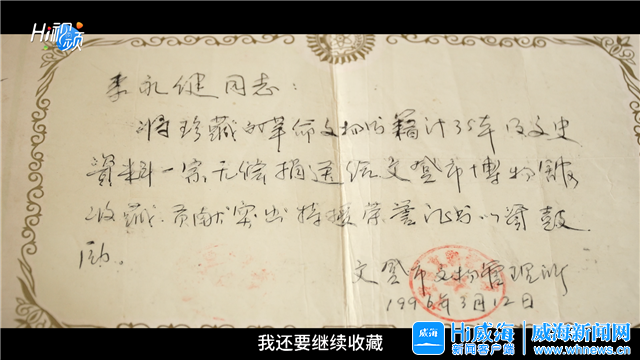 Hi视频
李永健同志：
将珍藏的革命文物书籍计35本及文史
资料一宗无偿捐送给文登市博物馆
收藏.贡献突出特授荣誉证书以资鼓
励.
文登市文物管理所
1996年3月12日
我还要继续收藏
Hi威海
新闻客户端
威海
威海新闻网
www.whnews.cn